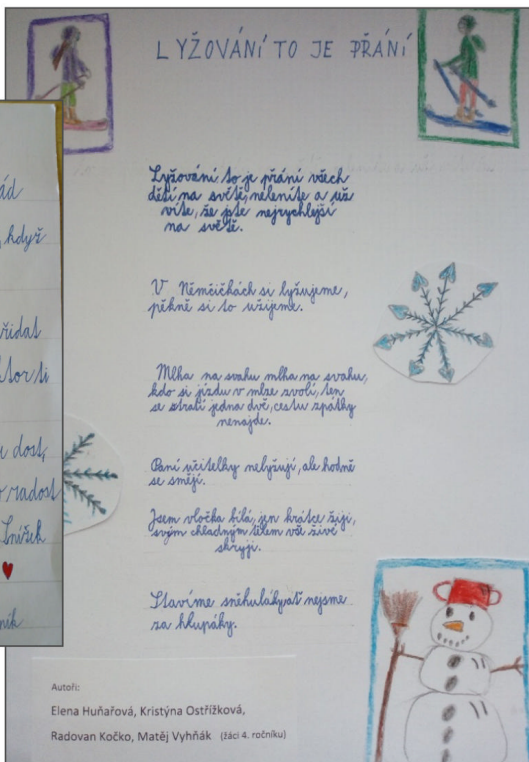 LYŽOVÁNÍ TO JE PŘÁNÍ
Lyžování to je přání všech
dětí na světě, nelenite a už
víte, že jste nejrychlejší
na světě.
V Němčičkách si lyžujeme,
pěkně si to užijeme.
Mlha na svahu mlha na svahu,
kdo si jízdu v mlze zvolí, ten
se stratí jedna dvě, cestu zpátky
nenajde.
Paní učitelky nelyžují, ale hodně
se smějí.
Jsem vločka bílá, jen krátce žiji,
svým chladným tělem vše živé
skryji.
Stavíme sněhuláky, ať nejsme
za hlupáky.
když
řidat
dost,
radost
Autoři:
Elena Huňařová, Kristýna Ostřížková,
Radovan Kočko, Matěj Vyhňák (žáci 4. ročníku)